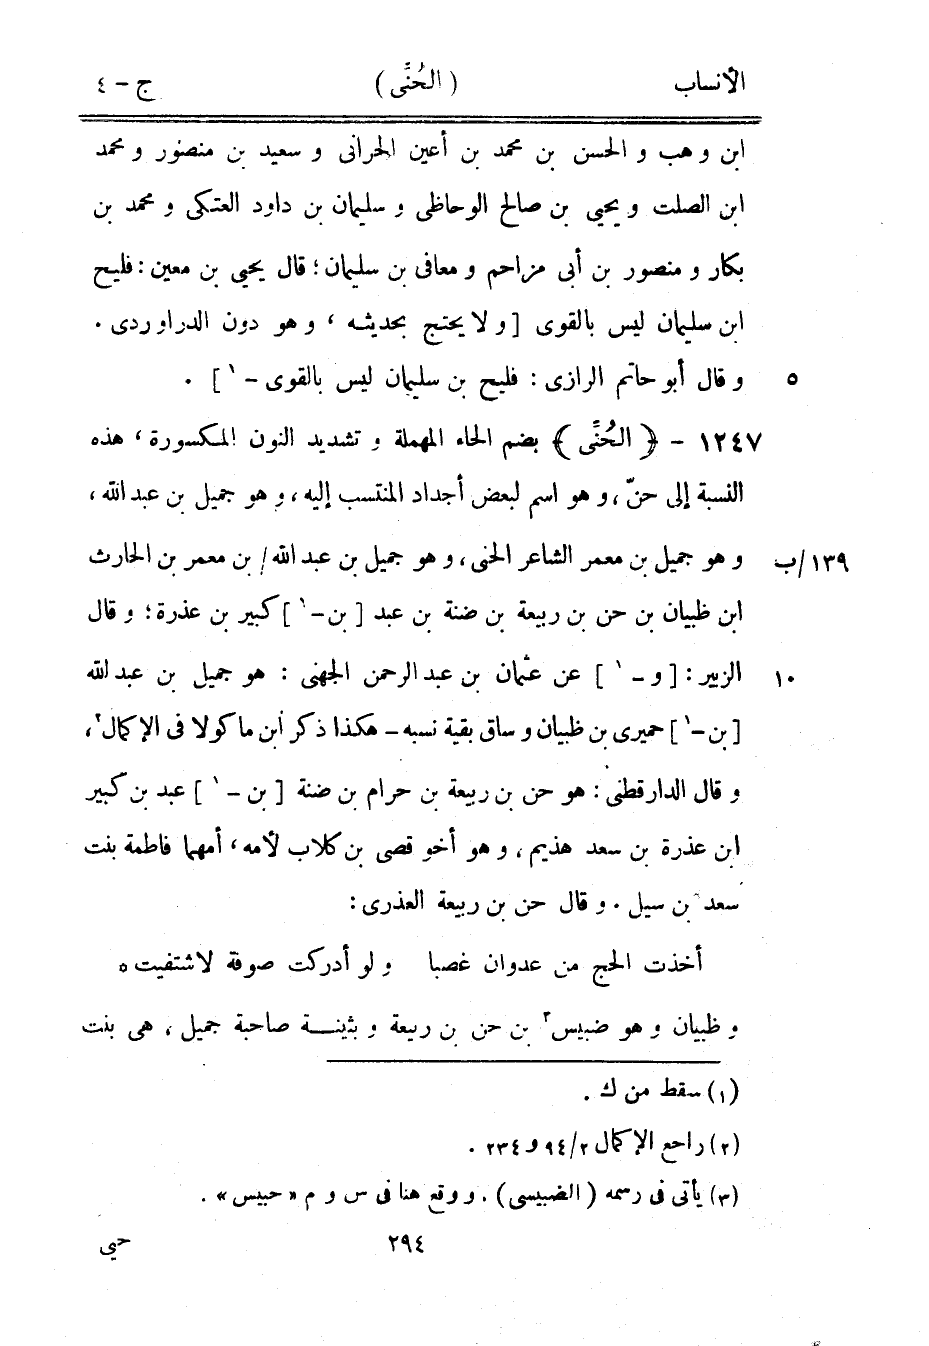 الأنساب (الحُنِّى) ج - ٤
ابن وهب و الحسن بن محمد بن أعين الحرانى و سعيد بن منصور و محمد
ابن الصلت و يحيى بن صالح الوحاظى و سليمان بن داود العتكى و محمد بن
بكار و منصور بن أبى مزاحم و معافى بن سليمان؛ قال يحيى بن معين: فليح
ابن سليمان ليس بالقوى [و لا يحتج بحديثه، و هو دون الدراوردى.
٥ و قال أبو حاتم الرازى: فليح بن سليمان ليس بالقوى - ١].
١٢٤٧ - ﴿الحُنِّى﴾ بضم الحاء المهملة و تشديد النون المكسورة، هذه
النسبة إلى حنّ، و هو اسم لبعض أجداد المنتسب إليه، و هو جميل بن عبد الله،
١٣٩/ب و هو جميل بن معمر الشاعر الحنى، و هو جميل بن عبد الله / بن معمر بن الحارث
ابن ظبيان بن حن بن ربيعة بن ضنة بن عبد [بن - ١] كبير بن عذرة؛ و قال
١٠ الزبير: [و - ١] عن عثمان بن عبد الرحمن الجهنى: هو جميل بن عبد الله
[بن - ١] حميرى بن ظبيان و ساق بقية نسبه - هكذا ذكر ابن ماكولا فى الإكمال٢،
و قال الدارقطنى: هو حن بن ربيعة بن حرام بن ضنة [بن - ١] عبد بن كبير
ابن عذرة بن سعد هذيم، و هو أخو قصى بن كلاب لأمه، أمهما فاطمة بنت
سعد بن سيل. و قال حن بن ربيعة العذرى:
أخذت الحج من عدوان غصبا و لو أدركت صوفة لاشتفيت ٥
و ظبيان و هو ضبيس٣ بن حن بن ربيعة و بثينة صاحبة جميل، هى بنت
(١) سقط من ك.
(٢) راجع الإكمال ٢/ ٩٤ و ٢٣٤.
(٣) يأتى فى رسمه (الضبيسى). و وقع هنا فى س و م «حبيس».
٢٩٤ حيى